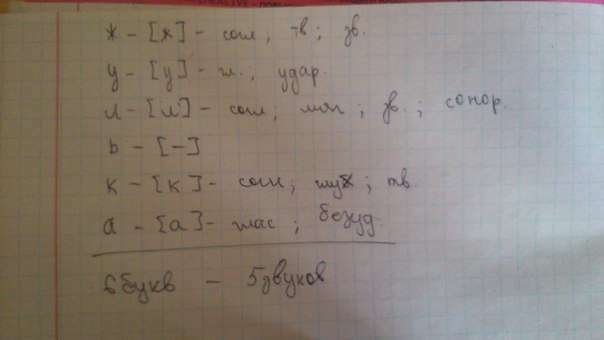 ж – [ж] – согл, тв; зв.
у – [у] – гл., удар.
л – [л'] – согл; мяг; зв.; сонор.
ь – [–]
к – [к] – согл; ; тв.
а – [а] – глас; безуд.
6 букв – 5 звуков